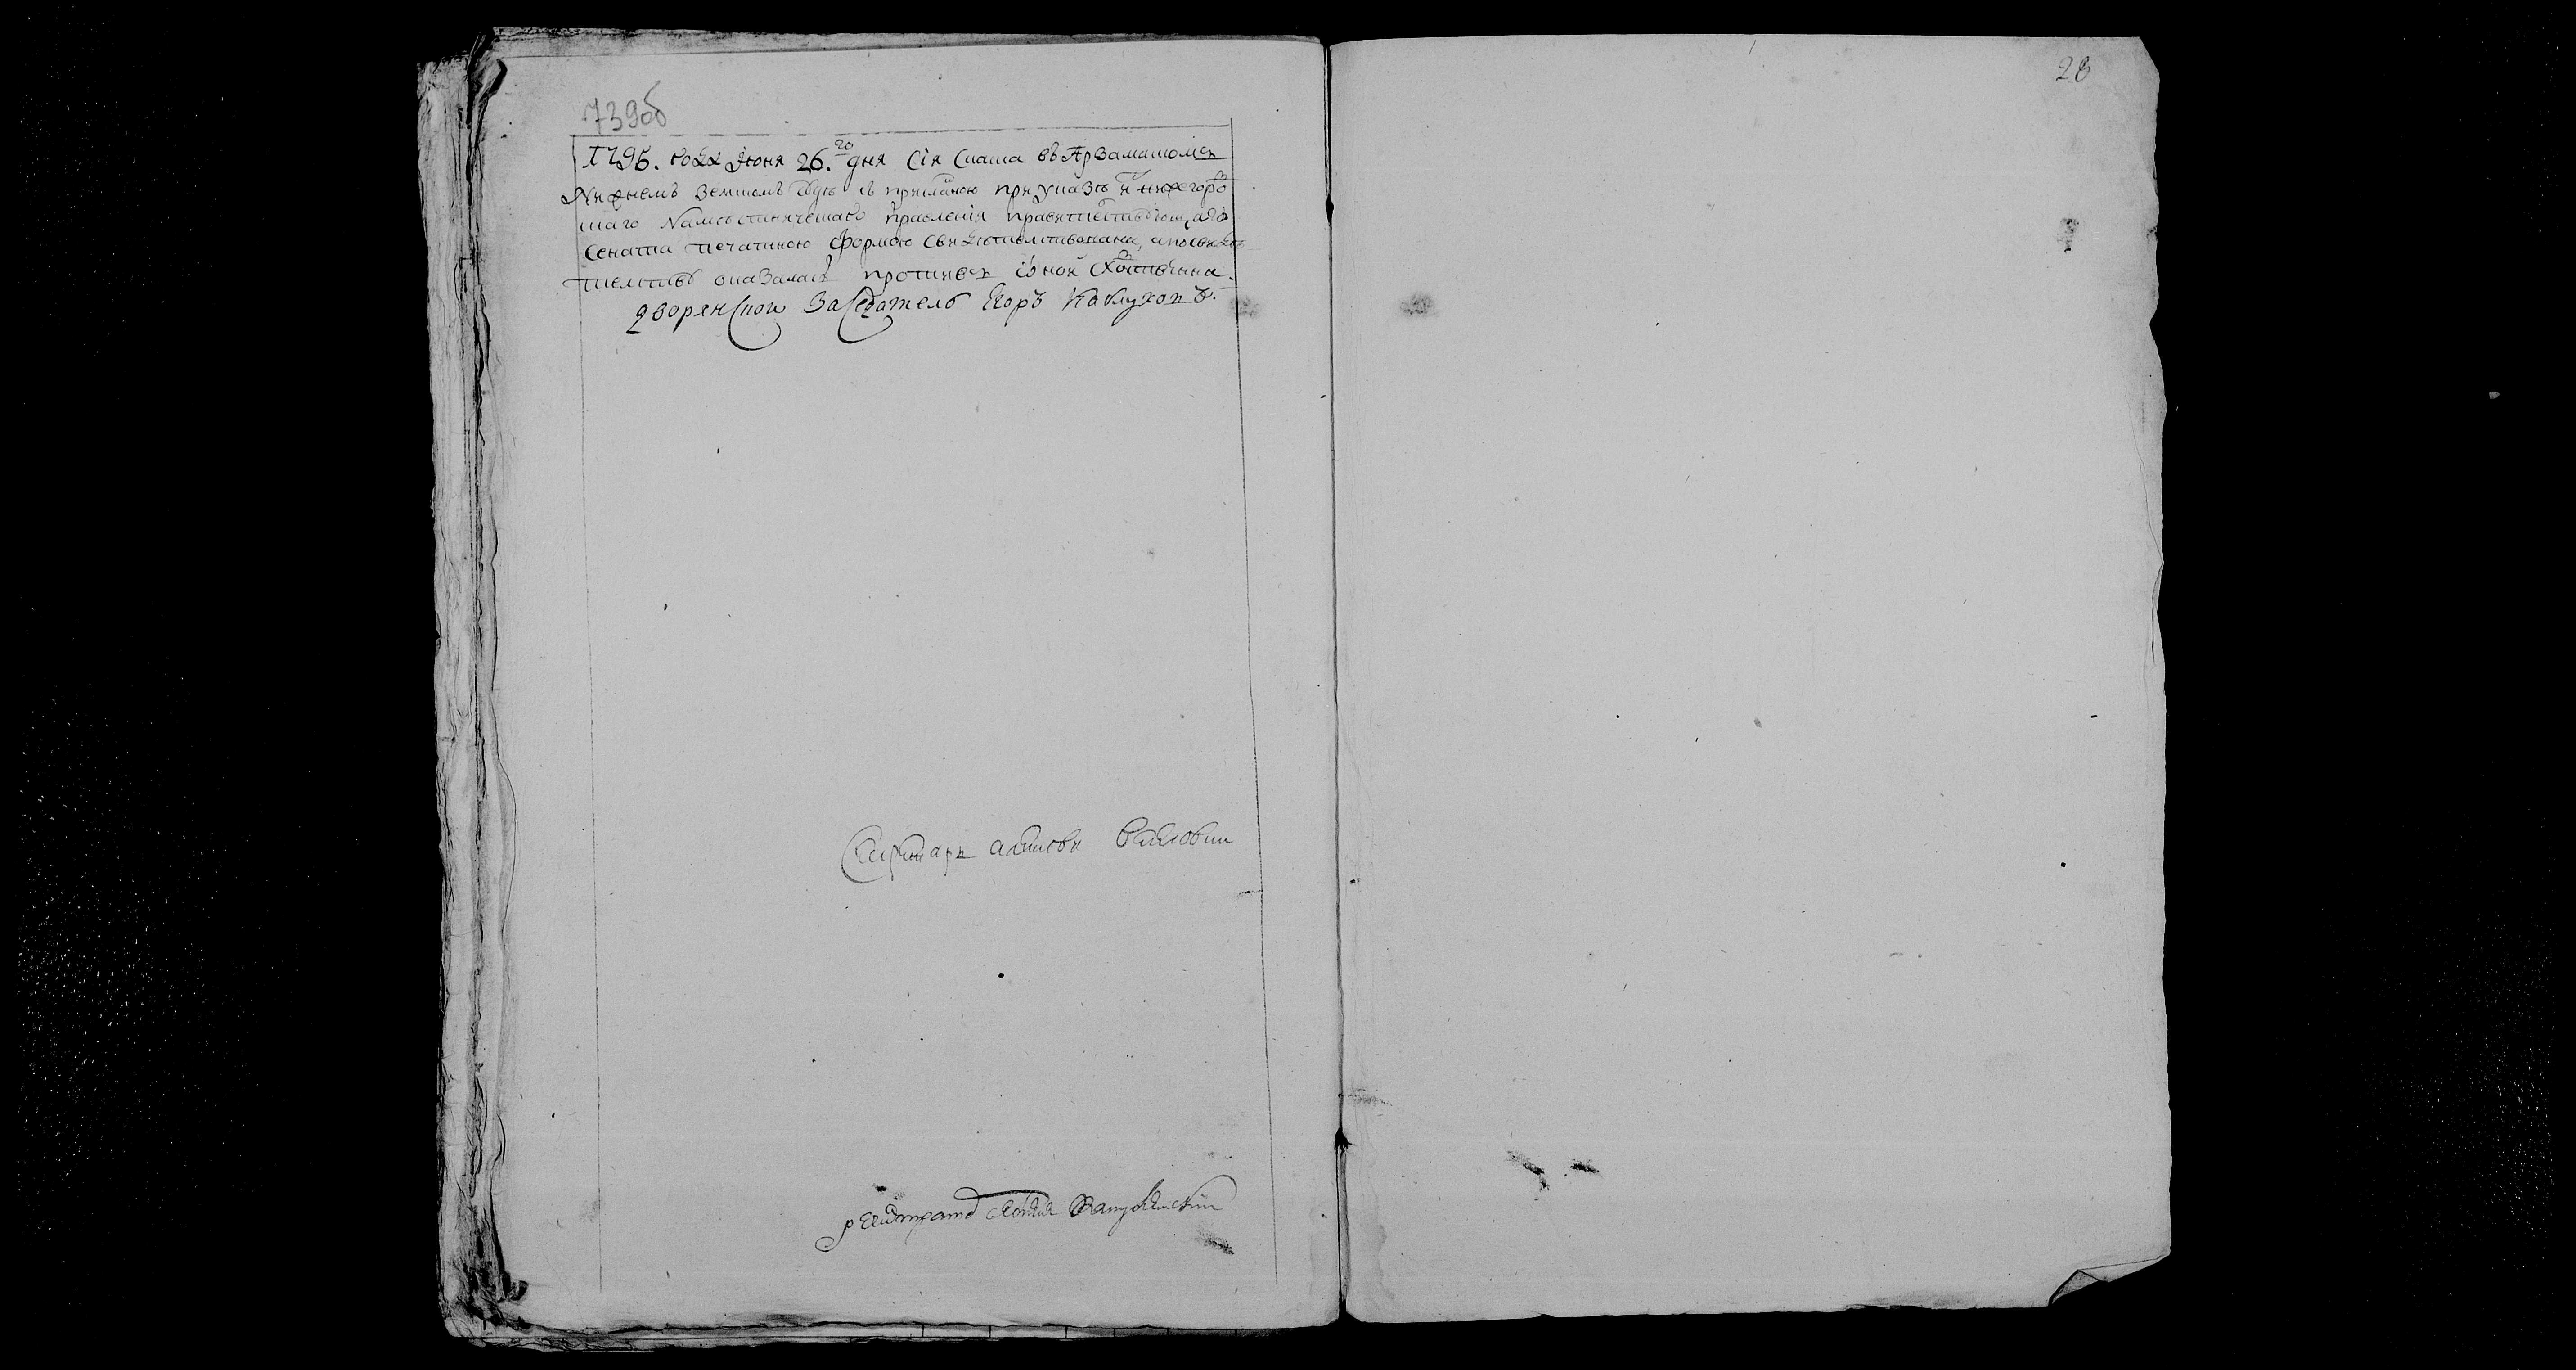 739об
28
1795. года Июня 26.го дня Сія Скаска въ Арзамаскомъ
Нижнемъ Земскомъ Суде съ присланою при указе из нижегород
скаго Наместническаго правления правительствующаго
Сената печатною формою свидетельствована, а по свиде
тельству оказалась противъ оной сходственна.
дворенской Заседатель Егоръ
Секретарь
регистраторъ